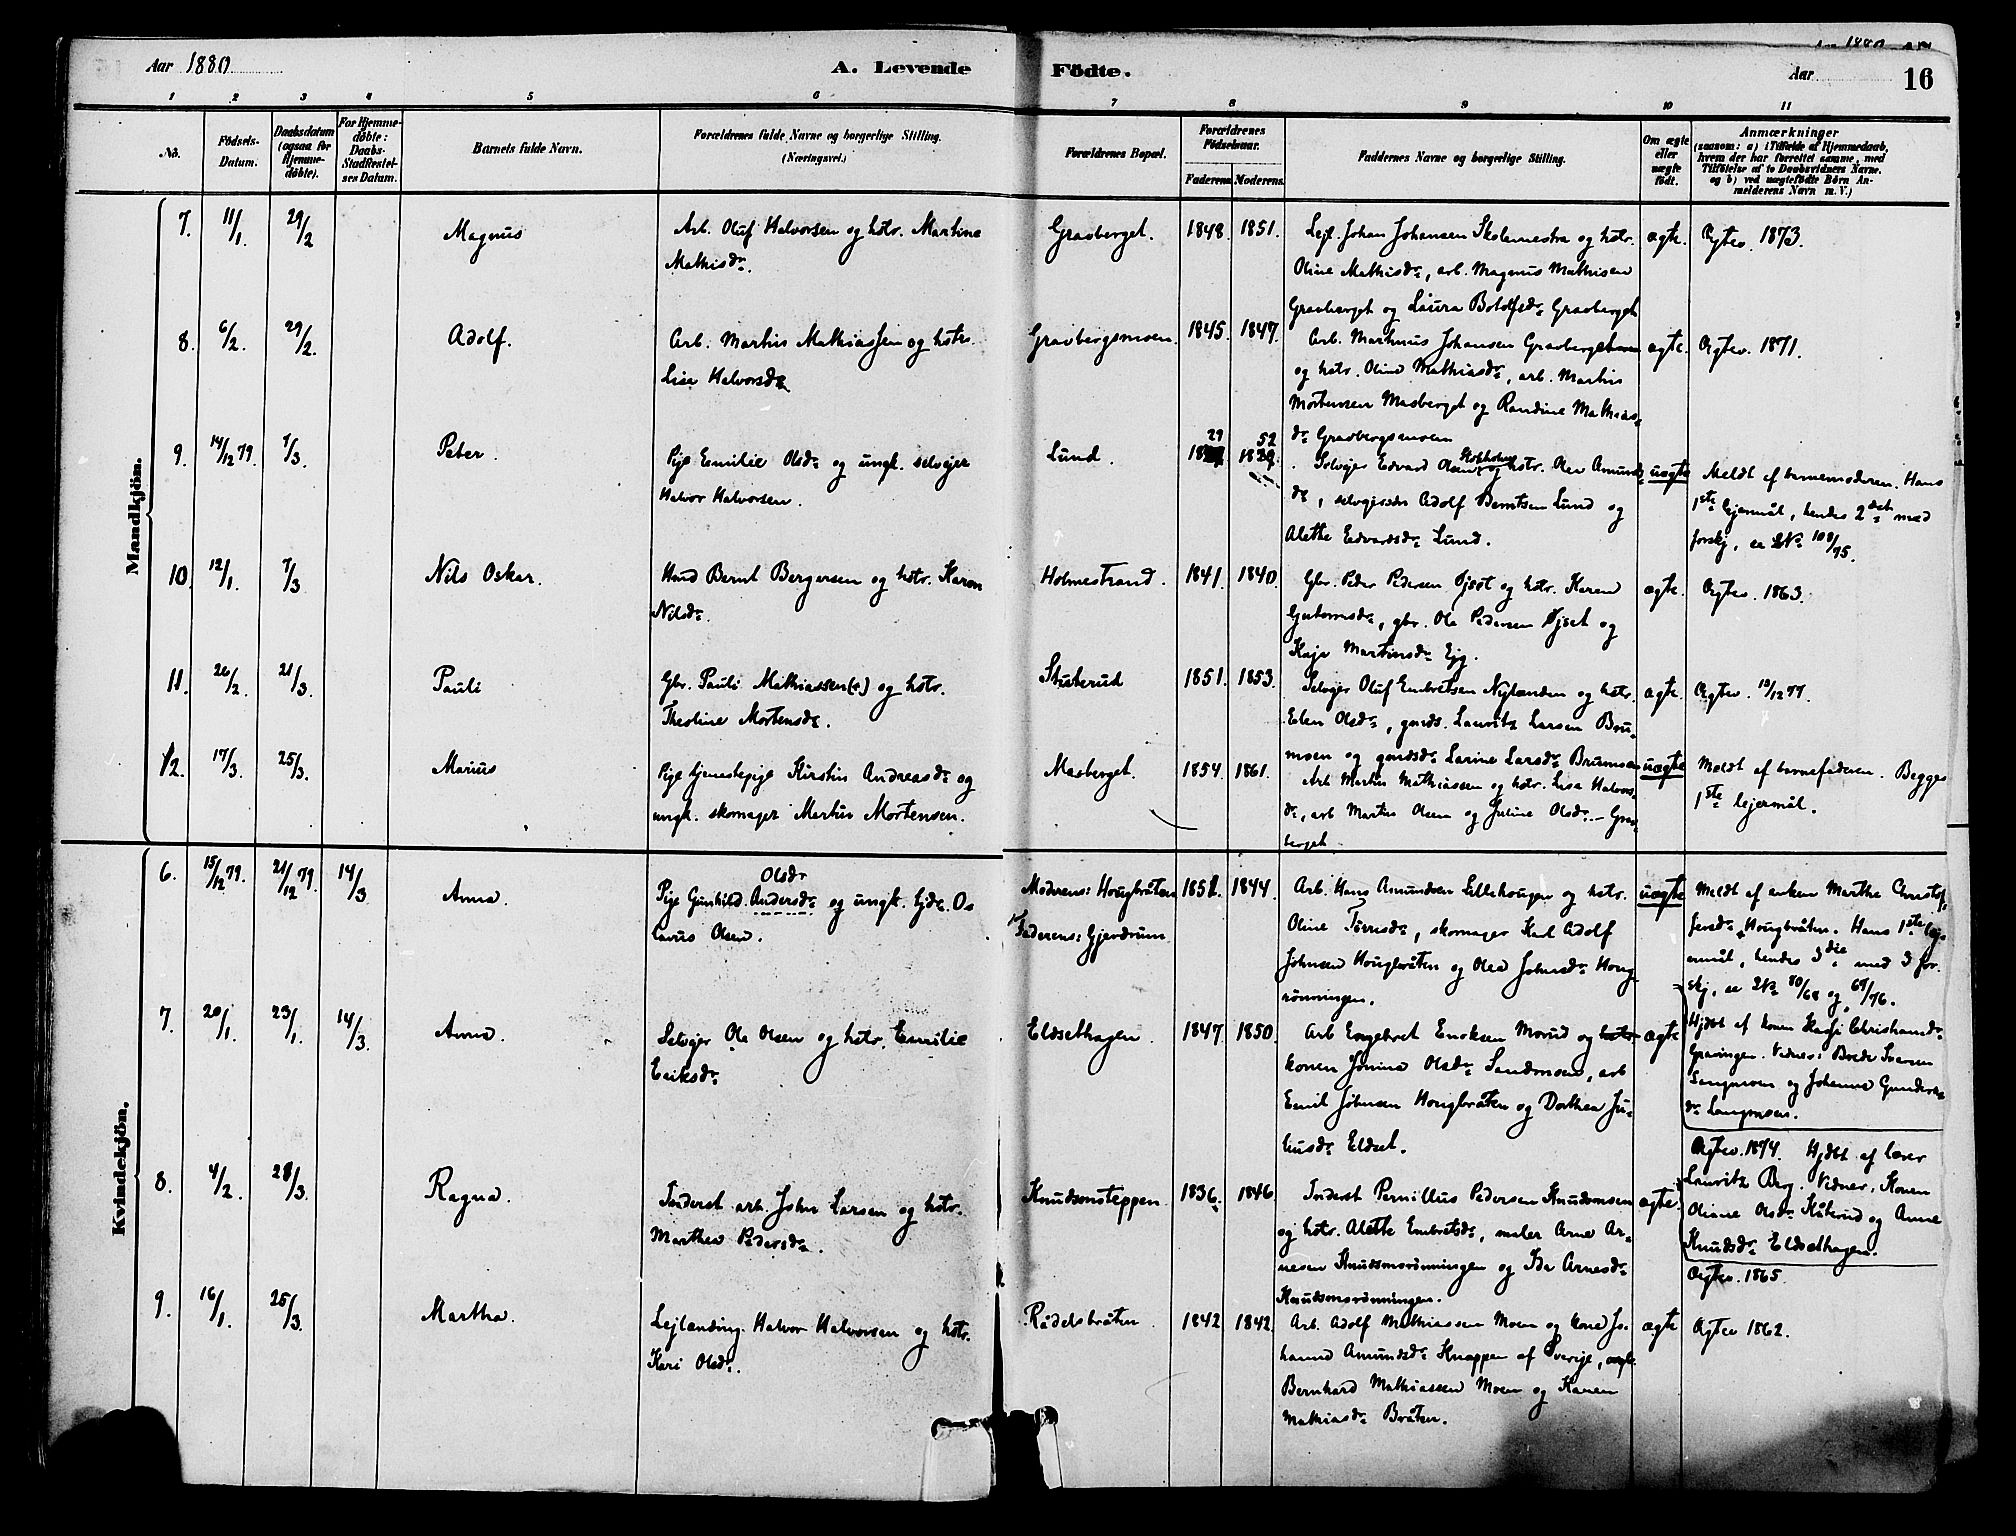 Aar 1880
A. Levende Födte.
Aar
16
1 2 3 4 5 6 7 8 9 10 11
No.
Födsels-
Datum.
Daabsdatum
(ogsaa for
Hjemme-
döbte).
For Hjemme-
döbte:
Daabs-
Stadfæstel-
ses Datum.
Barnets fulde Navn.
Forældrenes fulde Navne og borgerlige Stilling.
(Næringsvei.)
Forældrenes Bopæl.
Forældrenes
Födselsaar.
Faderens. Moderens.
Faddernes Navne og borgerlige Stilling.
Om ægte
eller
uægte
födt.
Anmærkninger
(saasom: a) i Tilfælde af Hjemmedaab,
hvem der har forrettet samme, med
Tilföielse af to Daabsvidners Navne,
og b) ved uægtefödte Börn An-
melderens Navn m. V.)
Mandkjön.
7. 11/1. 29/2 Magnus
Arb. Oluf Halvorsen og hstr. Martine
Mathisdr.
Gravberget. 1848. 1851.
Lejl. Johan Johansen og hstr.
Oline Mathisdr, arb. Magnus Mathisen
Gravberget og Laura Botolfsdr Gravberget
ægte. Ægtev. 1873.
8. 6/2. 29/2. Adolf.
Arb. Martin Mathiassen og hstr.
Lise Halvorsdr
Gravbergsmoen. 1845. 1847.
Arb. Markus Johansen Gravberget
og hstr. Oline Mathiasdr, arb. Martin
Mortensen Masberget og Randine Mathias-
dr Gravbergsmoen
ægte. Ægtev. 1871.
9. 14/12 79. 7/3. Peter.
Pige Emilie Olsdr og ungk. selvejer
Halvor Halvorsen.
Lund. 29 52
Selvejer Edvard Olsen og hstr. Olea Amunds-
dr, selvejersøn Adolf Berntsen Lund og
Alette Edvardsdr Lund.
uægte
Meldt af barnemoderen. Hans
1ste lejermål, hendes 2det med
forskj, se 108/75.
10. 12/1. 7/3 Nils Oskar.
Hmd Bernt Bergersen og hstr. Karen
Nilsdr.
Holmestrand. 1841. 1840.
Gbr. Peder Pedersen Øjset og hstr. Karen
Gutormsdr, gbr. Ole Pedersen Øjset og
Kaja Martinsdr Ejg.
ægte. Ægtev. 1863.
11. 26/2. 21/3. Pauli
Gbr. Pauli Mathiassen(+) og hstr.
Theoline Mortensdr.
Stuterud 1851. 1853.
Selvejer Oluf Embretsen Nylænden og hstr.
Elen Olsdr, gards. Lauritz Larsen Bru-
moen og gardsdr Larine Larsdr Brumoen
ægte. Ægtev. 12/12 77.
12. 17/3. 25/3. Marius
Pige tjenestepige Kirstin Andreasdr og
ungk. skomager Martin Mortensen.
Masberget. 1854. 1861.
Arb Martin Mathiassen og hstr. Lisa Halvors-
dr, arb Martin Olsen og Juline Olsdr - Grav-
berget
uægte
Meldt af barnefaderen. Begges
1ste lejermål.
Kvindekjön.
6. 15/12 79. 21/12 79. 14/3 Anna.
Olsdr
Pige Gunhild Andersdr og ungk. Ejdr. Os
carus Olsen.
Moderens: Hougbråten
Faderens: Gjerdrum
1851. 1844.
Arb. Hans Amundsen Lillehougen og hstr.
Oline Tørrisdr, skomager Karl Adolf
Johnsen Hougbråten og Olea Johnsdr Houg-
rönningen.
uægte
Meldt af enken Marthe Christof-
fersdr Hougbråten. Hans 1ste lej-
ermål, hendes 3die med 3 for-
skj, se 80/68 og 69/76.
7. 20/1. 23/1. 14/3. Anna.
Selvejer Ole Olsen og hstr. Emilie
Eriksdr
Eldsethagen. 1847. 1850.
Arb Engebret Enoksen Morud og hstr
konen Jonina Olsdr Sandmoen, arb
Emil Johnsen Hougbråten og Dorthea Ju-
liusdr Eldset.
ægte
Hjdbt af konen Kasji Christiansdr
Gravingen. Vidner: Brede Iversen
Langmoen og Johanne Gunders-
dr Langmoen.
Ægtev. 1874.
8. 4/2. 28/3. Ragna.
Inderst arb. John Larsen og hstr.
Marthea Pedersdr.
Knudsmoteppen. 1836. 1846.
Inderst Pernillus Pedersen Knudsmoen
og hstr. Alette Embretsdr, maler Arne Ar-
nesen Knudsmorönningen og Ida Arnesdr
Knudsmorönningen.
ægte.
Hjdbt af lærer
Lauritz Berg. Vidner, Konen
Oliane Olsdr Kåterud og Anne
Knudsdr Eldsethagen.
Ægtev. 1865.
9. 16/1. 25/3. Martha.
Lejlending. Halvor Halvorsen og hstr.
Kari Olsdr.
Rådelsbråten. 1842 1842.
Arb. Adolf Mathiassen Moen og kone Jo-
hanne Amundsdr Knappen af Sverige, ungk.
Bernhard Mathiassen Moen og Karen
Mathiasdr Bråten.
ægte Ægtev 1862.